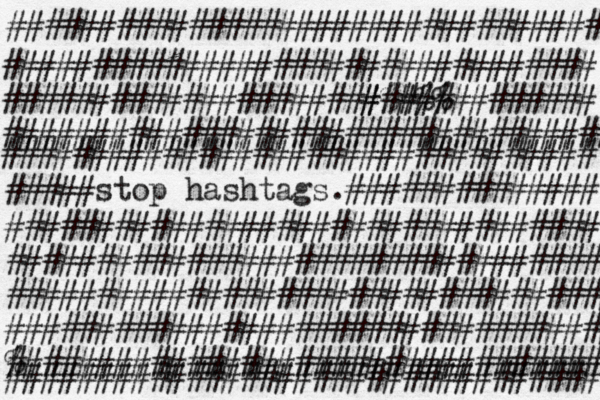 #################################
#################################
#################################
#################################
#################################
#####stop hashtags.##############
#################################
#################################
#################################
#################################
#################################
#################################